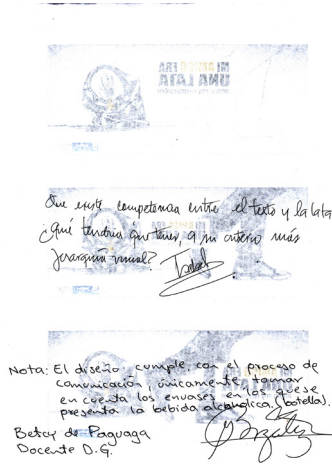 MI ABRE ERA
UNA LATA
Que existe competencia entre el texto y la lata
¿Qué tendría que tener, a su criterio más
jerarquía visual?
Nota: El diseño cumple con el proceso de
comunicación, únicamente tomar
en cuenta los envases en los que se
presenta la bebida alcohólica (botella).
Betsy de Paguaga
Docente D.G.